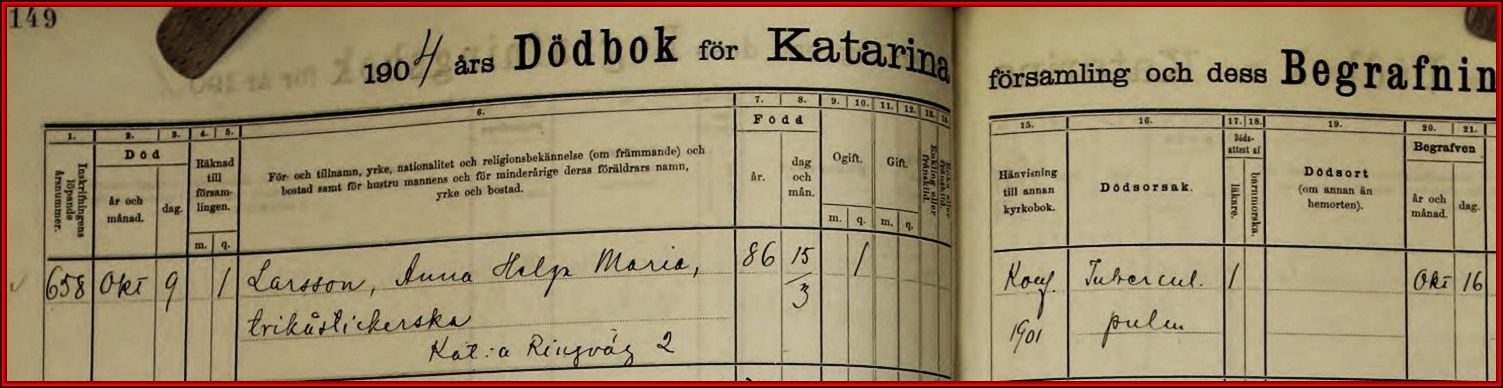 149
1904 års Dödbok för Katarina
församling och dess Begrafnin
1. 2. 3. 4. 5. 6. 7. 8. 9. 10. 11. 12. 13. 14.
Inskrifningens löpande årsnummer.
Död
år och månad.
dag.
Räknad till församlingen.
m. q.
För- och tillnamn, yrke, nationalitet och religionsbekännelse (om främmande) och
bostad samt för hustru mannens och för minderårige deras föräldrars namn,
yrke och bostad.
Född
år.
dag och mån.
Ogift.
m. q.
Gift.
m. q.
15. 16. 17. 18. 19. 20. 21.
Hänvisning
till annan
kyrkobok.
Dödsorsak.
Döds-
attest af
läkare.
barnmorska.
Dödsort
(om annan än
hemorten).
Begrafven
år och
månad.
dag.
658 Okt 9 1 Larsson, Anna Helga Maria, 86 15/3 1
trikåstickerska
Kat:a Ringväg 2
Konf. Tubercul. 1 Okt 16
1901 pulm